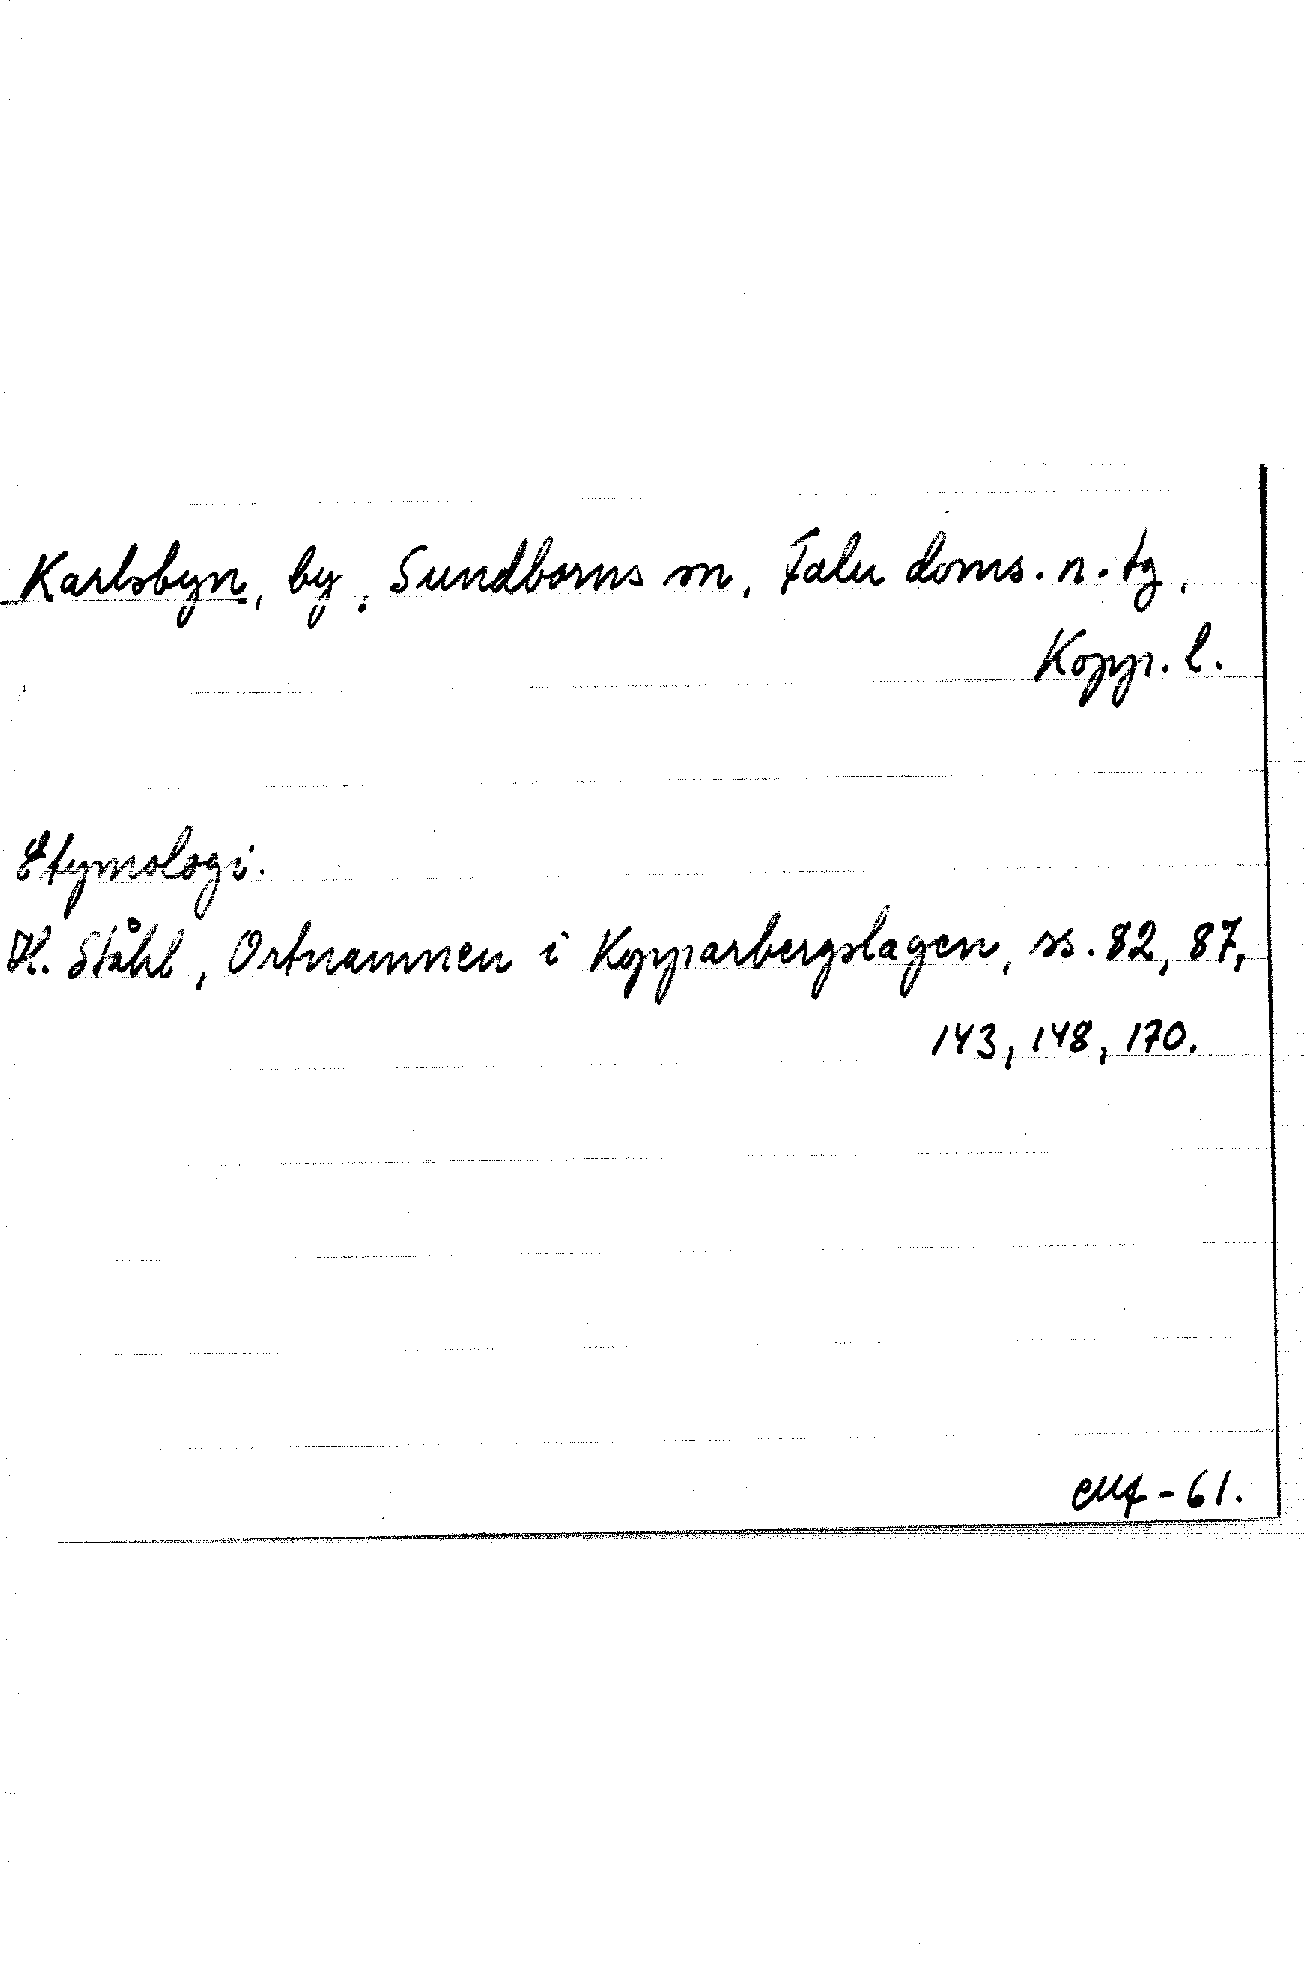 Karlsbyn, by, Sundborns sn, Falu doms. n. tg,
Kopp. l.
Etymologi.
H. Ståhl, Ortnamnen i Kopparbergslagen, ss. 82, 87,
143, 148, 170.
-61.